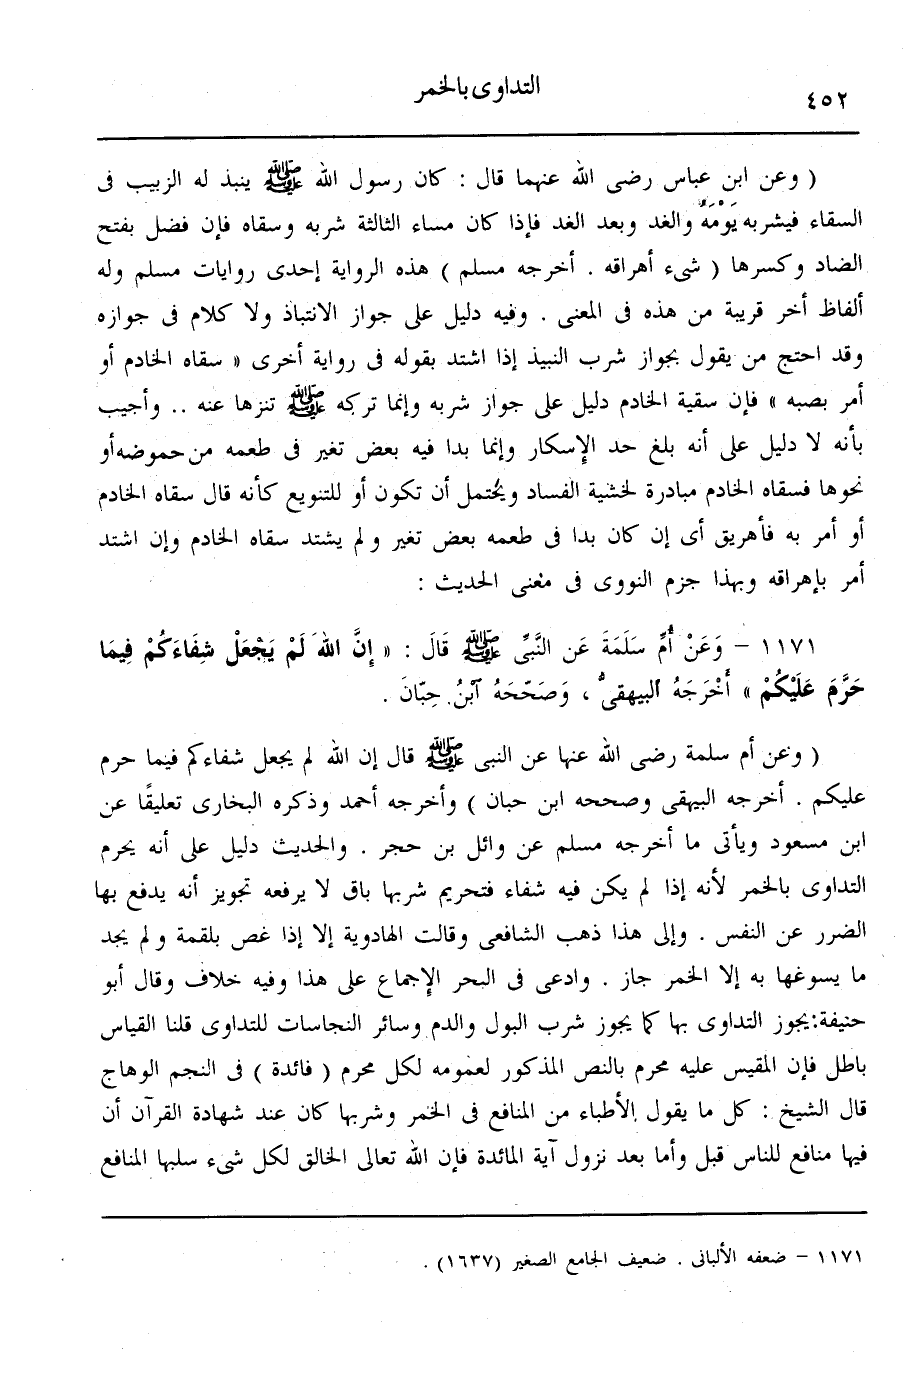 ٤٥٢
التداوى بالخمر
( وعن ابن عباس رضى الله عنهما قال : كان رسول الله ﷺ ينبذ له الزبيب فى
السقاء فيشربه يَوْمَهُ والغد وبعد الغد فإذا كان مساء الثالثة شربه وسقاه فإن فضل بفتح
الضاد وكسرها ( شىء أهراقه . أخرجه مسلم ) هذه الرواية إحدى روايات مسلم وله
ألفاظ أخر قريبة من هذه فى المعنى . وفيه دليل على جواز الانتباذ ولا كلام فى جوازه
وقد احتج من يقول بجواز شرب النبيذ إذا اشتد بقوله فى رواية أخرى « سقاه الخادم أو
أمر بصبه » فإن سقية الخادم دليل على جواز شربه وإنما تركه ﷺ تنزها عنه .. وأجيب
بأنه لا دليل على أنه بلغ حد الإسكار وإنما بدا فيه بعض تغير فى طعمه من حموضه أو
نحوها فسقاه الخادم مبادرة لخشية الفساد ويحُتمل أن تكون أو للتنويع كأنه قال سقاه الخادم
أو أمر به فأهريق أى إن كان بدا فى طعمه بعض تغير ولم يشتد سقاه الخادم وإن اشتد
أمر بإهراقه وبهذا جزم النووى فى معنى الحديث :
١١٧١ – وَعَنْ أُمِّ سَلَمَةَ عَن النَّبىِّ ﷺ قَالَ : « إِنَّ اللهَ لَمْ يَجْعَلْ شِفَاءَكُمْ فِيمَا
حَرَّمَ عَلَيْكُمْ » أَخْرَجَهُ البيهقىُّ ، وَصَحّحَهُ آبْنُ حِبّانَ .
( وعن أم سلمة رضى الله عنها عن النبى ﷺ قال إن الله لم يجعل شفاءكم فيما حرم
عليكم . أخرجه البيهقى وصححه ابن حبان ) وأخرجه أحمد وذكره البخارى تعليقًا عن
ابن مسعود ويأتى ما أخرجه مسلم عن وائل بن حجر . والحديث دليل على أنه يحرم
التداوى بالخمر لأنه إذا لم يكن فيه شفاء فتحريم شربها باق لا يرفعه تجويز أنه يدفع بها
الضرر عن النفس . وإلى هذا ذهب الشافعى وقالت الهادوية إلا إذا غص بلقمة ولم يجد
ما يسوغها به إلا الخمر جاز . وادعى فى البحر الإجماع على هذا وفيه خلاف وقال أبو
حنيفة:يجوز التداوى بها كما يجوز شرب البول والدم وسائر النجاسات للتداوى قلنا القياس
باطل فإن المقيس عليه محرم بالنص المذكور لعمومه لكل محرم ( فائدة ) فى النجم الوهاج
قال الشيخ : كل ما يقول الأطباء من المنافع فى الخمر وشربها كان عند شهادة القرآن أن
فيها منافع للناس قبل وأما بعد نزول آية المائدة فإن الله تعالى الخالق لكل شىء سلبها المنافع
١١٧١ – ضعفه الألبانى . ضعيف الجامع الصغير (١٦٣٧) .